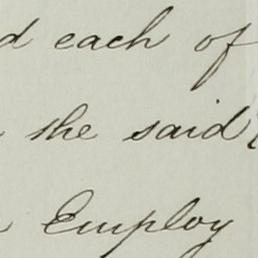 each of
she said
Employ